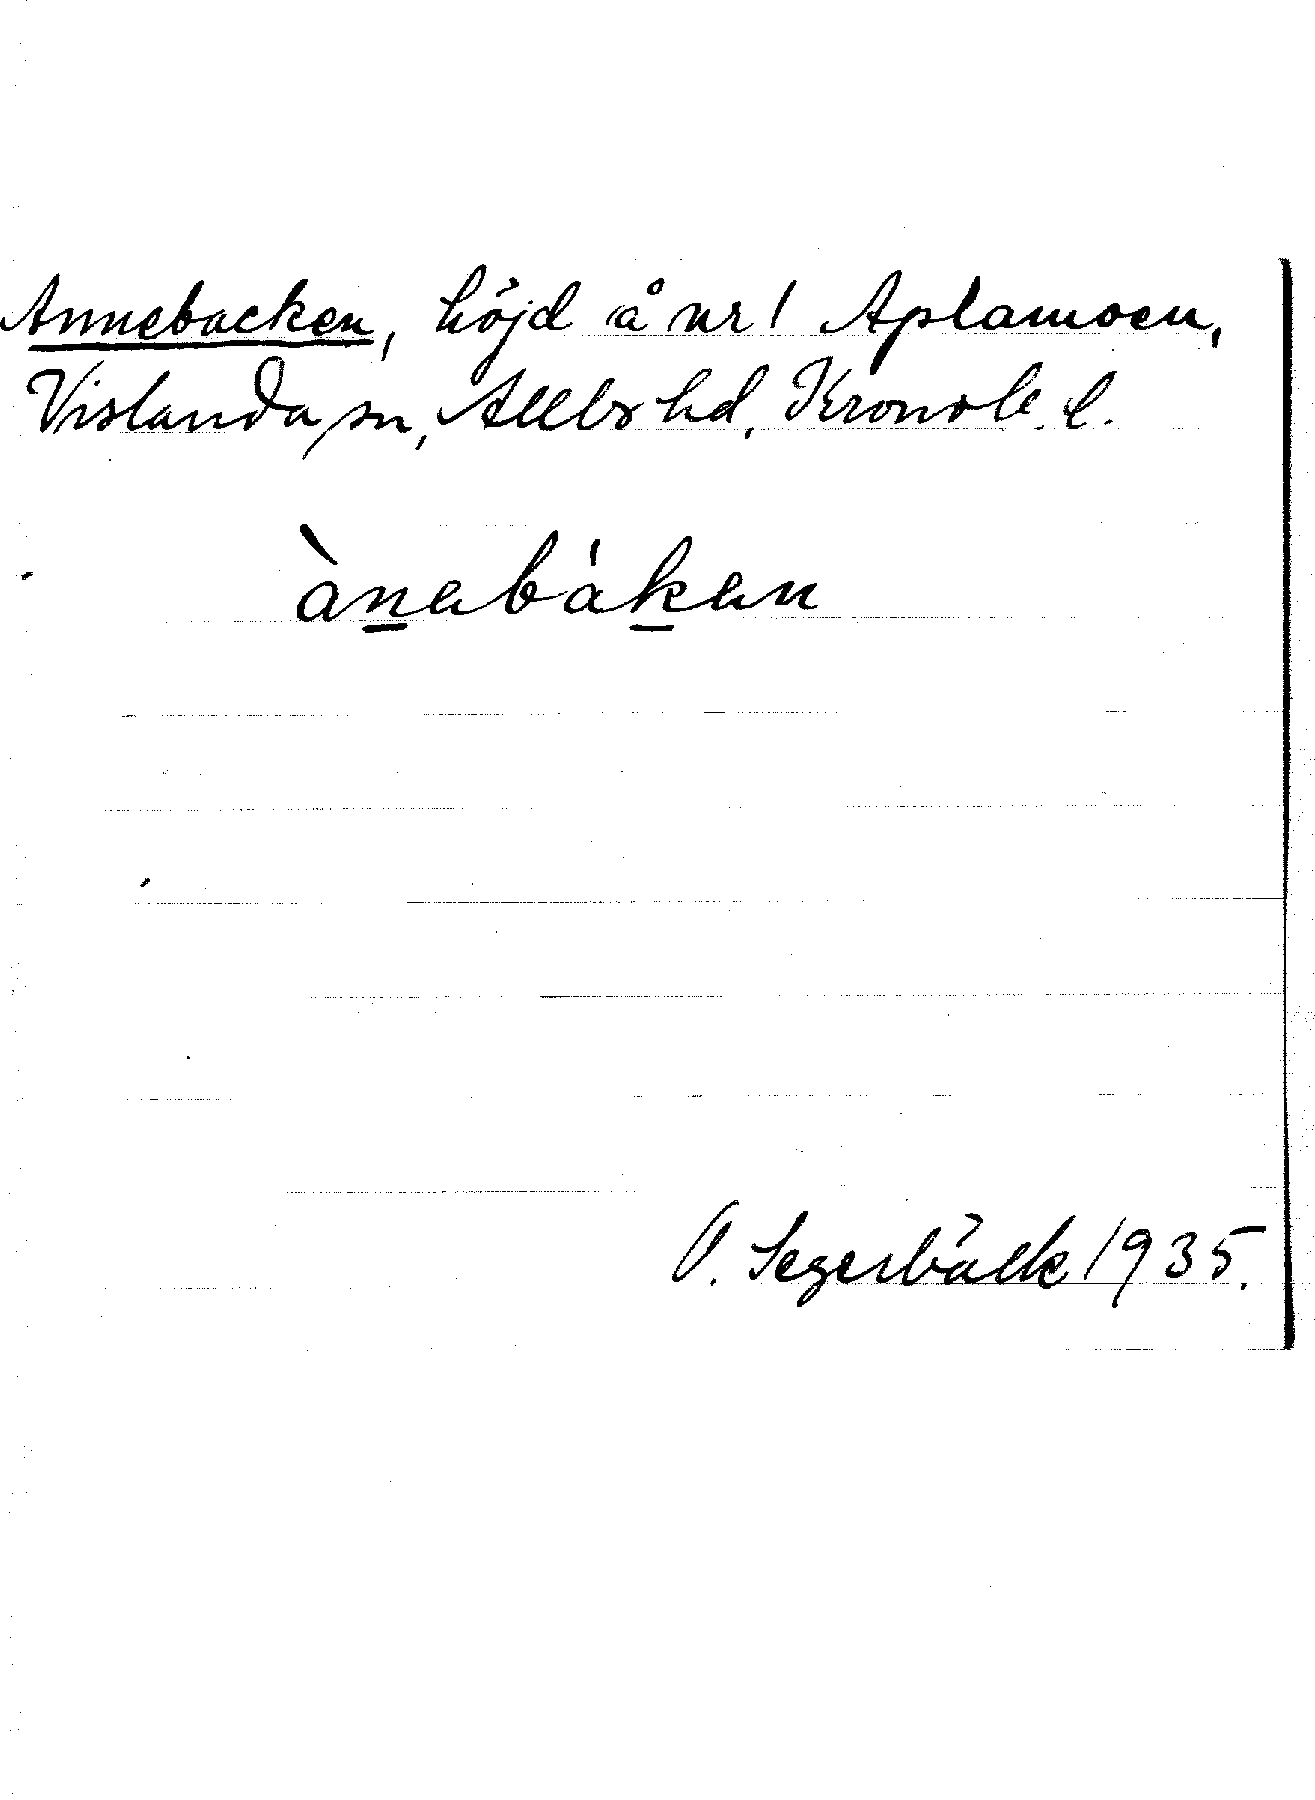 Annebacken, höjd å nr 1 Aplamoen,
Vislanda sn, Allbo hd, Kronob. l.
ànabákan
O. Segerbäck 1935.